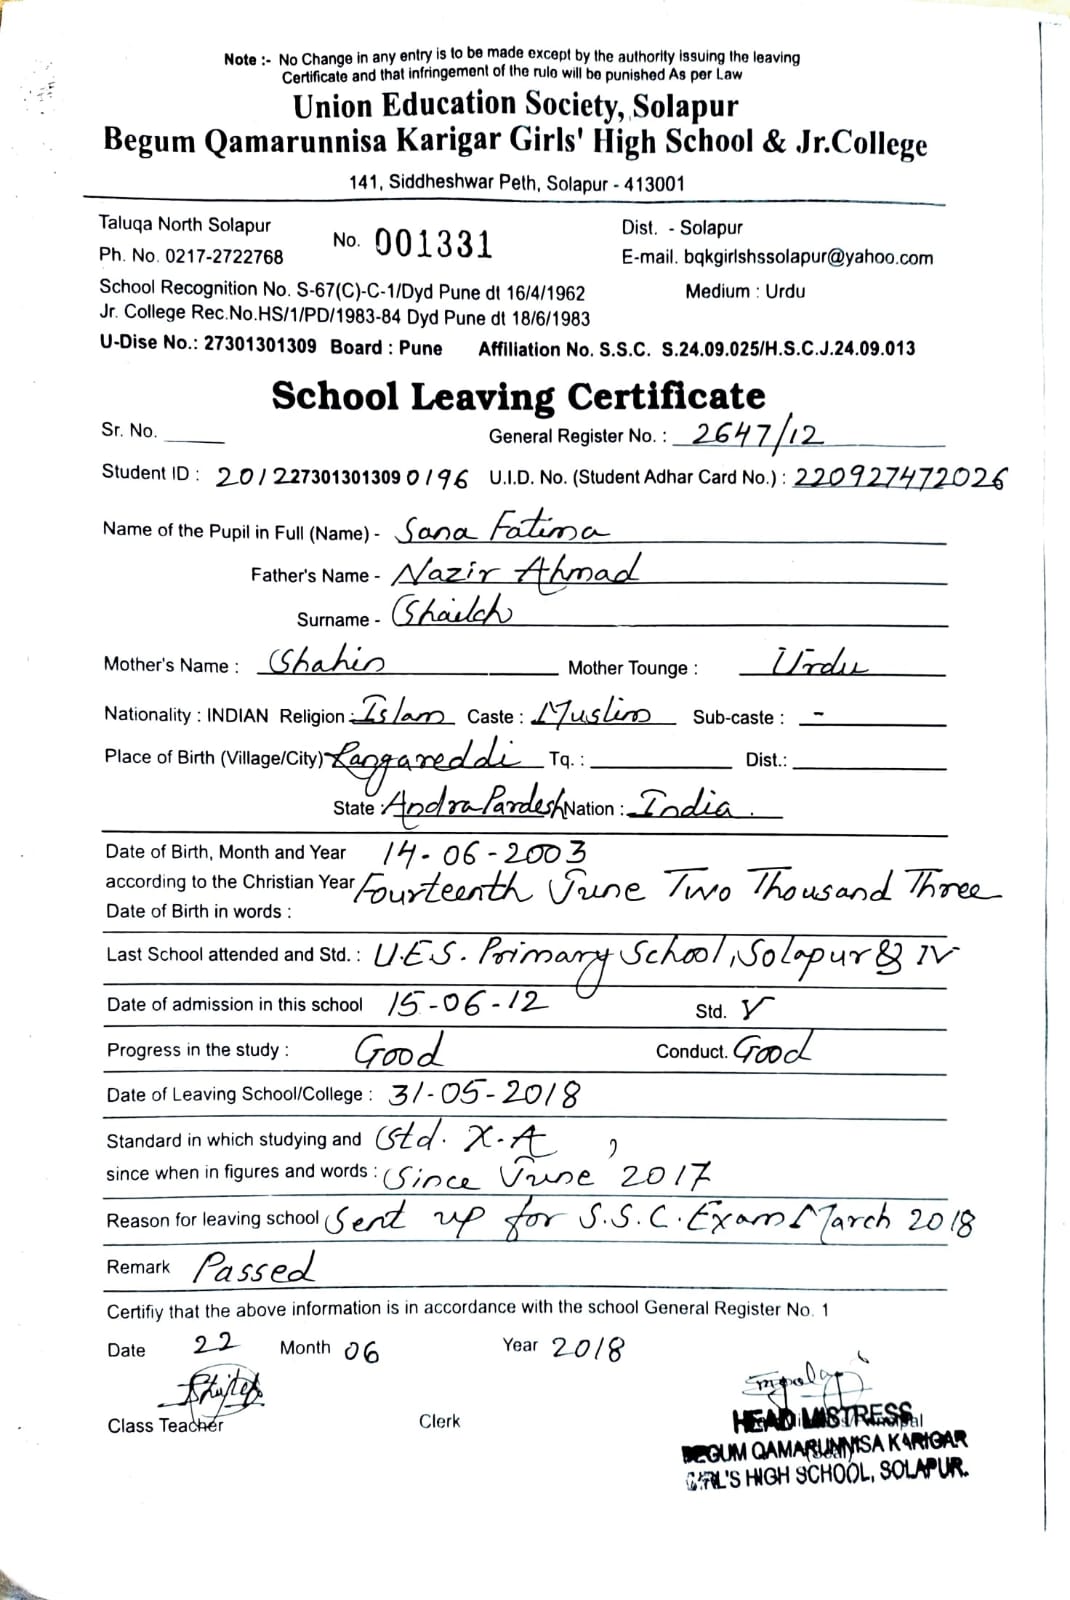 Note :- No Change in any entry is to be made except by the authority issuing the leaving
Certificate and that infringement of the rule will be punished As per Law
Union Education Society, Solapur
Begum Qamarunnisa Karigar Girls' High School & Jr.College
141, Siddheshwar Peth, Solapur - 413001
Taluqa North Solapur No. 001331 Dist. - Solapur
Ph. No. 0217-2722768 E-mail. bqkgirlshssolapur@yahoo.com
School Recognition No. S-67(C)-C-1/Dyd Pune dt 16/4/1962 Medium : Urdu
Jr. College Rec.No.HS/1/PD/1983-84 Dyd Pune dt 18/6/1983
U-Dise No.: 27301301309 Board : Pune Affiliation No. S.S.C. S.24.09.025/H.S.C.J.24.09.013
School Leaving Certificate
Sr. No. General Register No. : 2647/12
Student ID : 2012273013013090196 U.I.D. No. (Student Adhar Card No.) : 220927472026
Name of the Pupil in Full (Name) - Sana Fatima
Father's Name - Nazir Ahmad
Surname - Shaikh
Mother's Name : Shahin Mother Tounge : Urdu
Nationality : INDIAN Religion : Islam Caste : Muslim Sub-caste : -
Place of Birth (Village/City) Rangareddi Tq. : Dist.:
State : Andra Pardesh Nation : India.
Date of Birth, Month and Year 14-06-2003
according to the Christian Year Fourteenth June Two Thousand Three
Date of Birth in words :
Last School attended and Std. : U.E.S. Primary School, Solapur & IV
Date of admission in this school 15-06-12 Std. V
Progress in the study : Good Conduct. Good
Date of Leaving School/College : 31-05-2018
Standard in which studying and Std. X-A,
since when in figures and words : Since June 2017
Reason for leaving school Sent up for S.S.C. Exam March 2018
Remark Passed
Certifiy that the above information is in accordance with the school General Register No. 1
Date 22 Month 06 Year 2018
Class Teacher Clerk
HEAD MISTRESS
BEGUM QAMARUNNISA KARIGAR
GIRL'S HIGH SCHOOL, SOLAPUR.